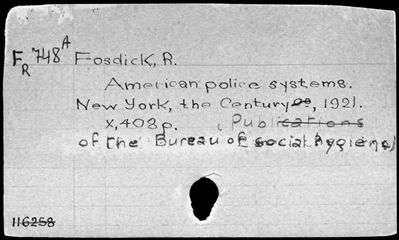 F R 748 A Fosdick, R.
American police systems.
New York, the Century Co, 1921.
X, 408 p. (Publications
of the Bureau of social hygiene)
116258